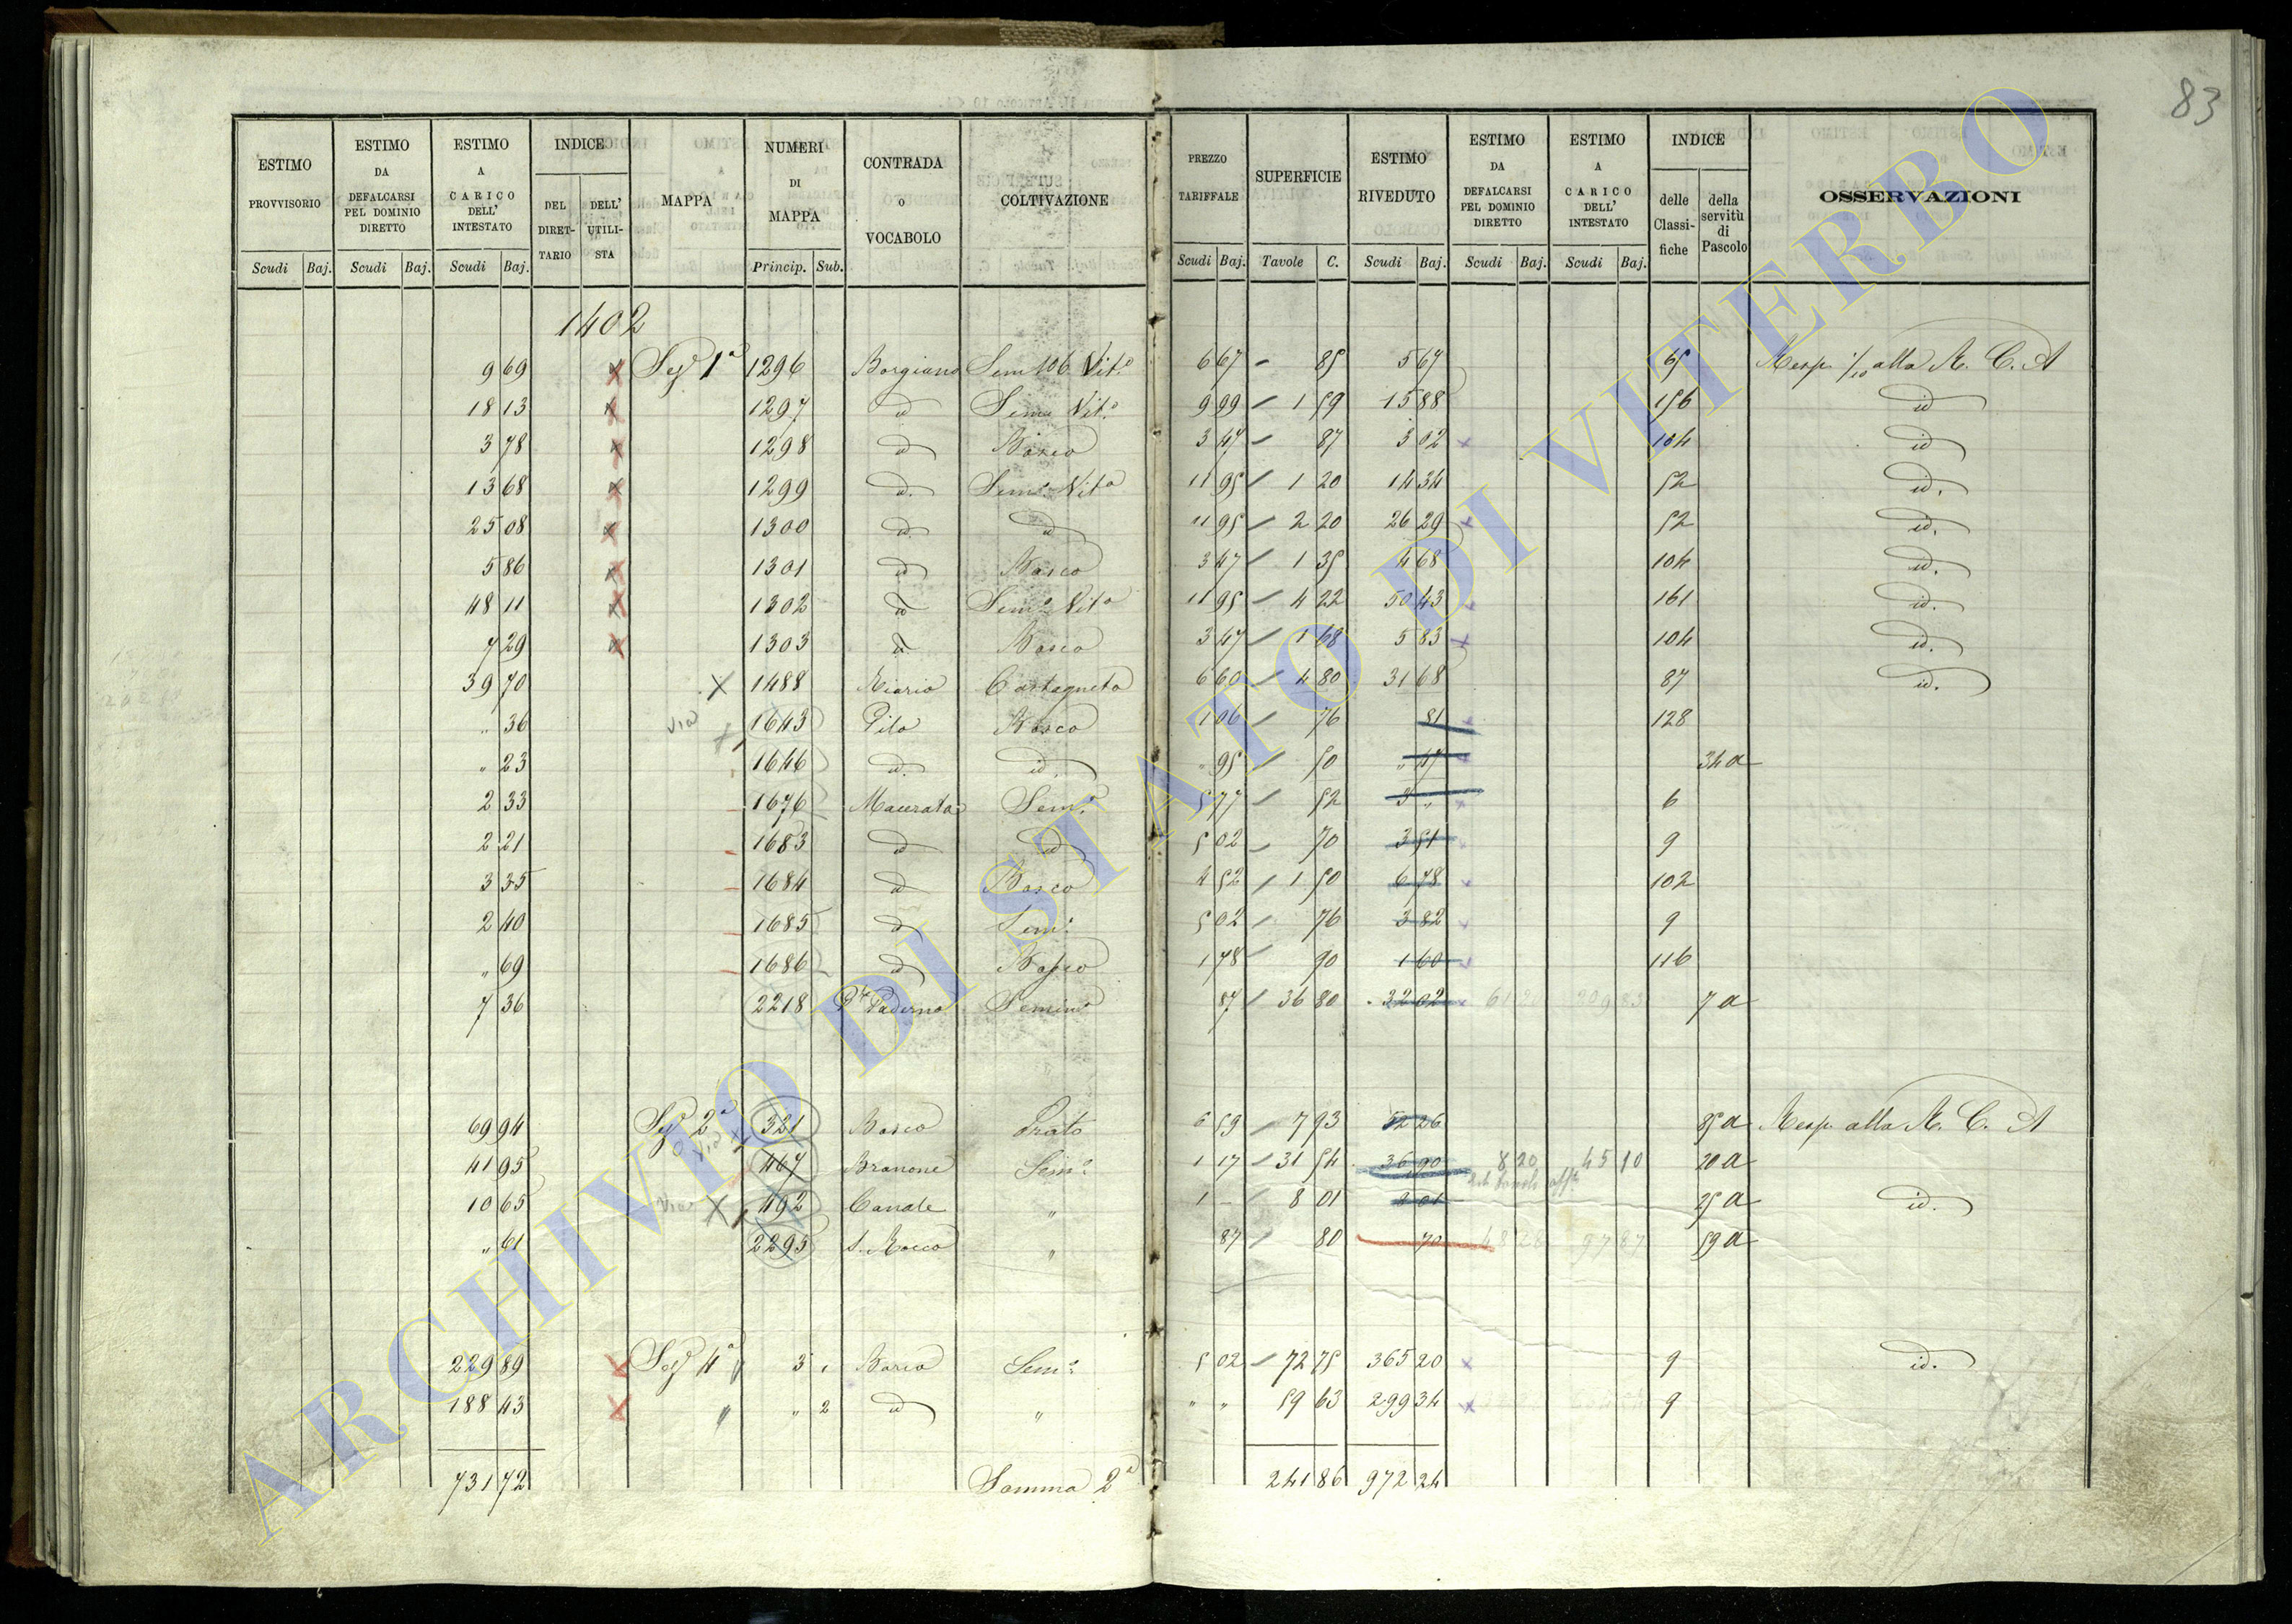 83
ESTIMO PROVVISORIO | ESTIMO DA DEFALCARSI PEL DOMINIO DIRETTO | ESTIMO A CARICO DELL' INTESTATO | INDICE | MAPPA | NUMERI DI MAPPA | CONTRADA O VOCABOLO | COLTIVAZIONE | PREZZO TARIFFALE | SUPERFICIE | ESTIMO RIVEDUTO | ESTIMO DA DEFALCARSI PEL DOMINIO DIRETTO | ESTIMO A CARICO DELL' INTESTATO | INDICE | OSSERVAZIONI
DEL DIRETTARIO | DELL' UTILISTA | delle Classifiche | della servitù di Pascolo
Scudi | Baj. | Scudi | Baj. | Scudi | Baj. | Princip. | Sub. | Scudi | Baj. | Tavole | C. | Scudi | Baj. | Scudi | Baj. | Scudi | Baj.
1402
9 69 | x | Sez 1ª | 1296 | Borgiano | Sem Vit.º | 6 67 | 85 | 5 67 | 65 | Resp. 1/10 alla R. C. A
18 13 | x | 1297 | id | Sem Vit.º | 9 99 | 1 59 | 15 88 | 156 | id
3 78 | x | 1298 | id | Bosco | 3 47 | 87 | 3 02 x | 104 | id
13 68 | x | 1299 | id. | Sem.º Vit.º | 11 95 | 1 20 | 14 34 | 52 | id.
25 08 | x | 1300 | id. | id | 11 95 | 2 20 | 26 29 x | 52 | id.
5 86 | x | 1301 | id | Bosco | 3 47 | 1 35 | 4 68 | 104 | id.
48 11 | x | 1302 | id | Sem.º Vit.º | 11 95 | 4 22 | 50 43 x | 161 | id.
7 29 | x | 1303 | id | Bosco | 3 47 | 1 68 | 5 83 x | 104 | id.
39 70 | x | 1488 | Riario | Castagneto | 6 60 | 4 80 | 31 68 | 87 | id.
" 36 | via x | 1643 | Pilo | Bosco | 1 06 | 76 | 81 x | 128
" 23 | 1646 | id. | id. | " 95 | 50 | " 47 | 34 a
2 33 | 1676 | Macerata | Sem.º | 5 77 | 52 | 3 " x | 6
2 21 | 1683 | id | id | 5 02 | 70 | 3 51 x | 9
3 35 | 1684 | id | Bosco | 4 52 | 1 50 | 6 78 x | 102
2 40 | 1685 | id | Sem.º | 5 02 | 76 | 3 82 x | 9
" 69 | 1686 | id | Bosco | 1 78 | 90 | 1 60 x | 116
7 36 | 2218 | Paderno | Semin.º | 87 | 36 80 | 32 02 x | 7 a
69 94 | Sez 2ª | 321 | Bosco | Prato | 6 59 | 7 93 | 52 26 | 85 a | Resp. alla R. C. A
41 95 | via x | 467 | Branone | Sem.º | 1 17 | 31 54 | 36 90 | 8 20 | 45 10 | 20 a
10 65 | via x | 492 | Canale | " | 1 – | 8 01 | 8 01 | 25 a | id.
" 61 | 2295 | S. Rocco | " | 87 | 80 | 70 | 97 87 | 59 a
229 89 | x | Sez 4ª | 3 | 1 | Barco | Sem.º | 5 02 | 72 75 | 365 20 x | 9 | id.
188 43 | x | " | " | 2 | id | " | " " | 59 63 | 299 34 x | 9
731 72 | Somma 2ª | 241 86 | 972 24
ARCHIVIO DI STATO DI VITERBO